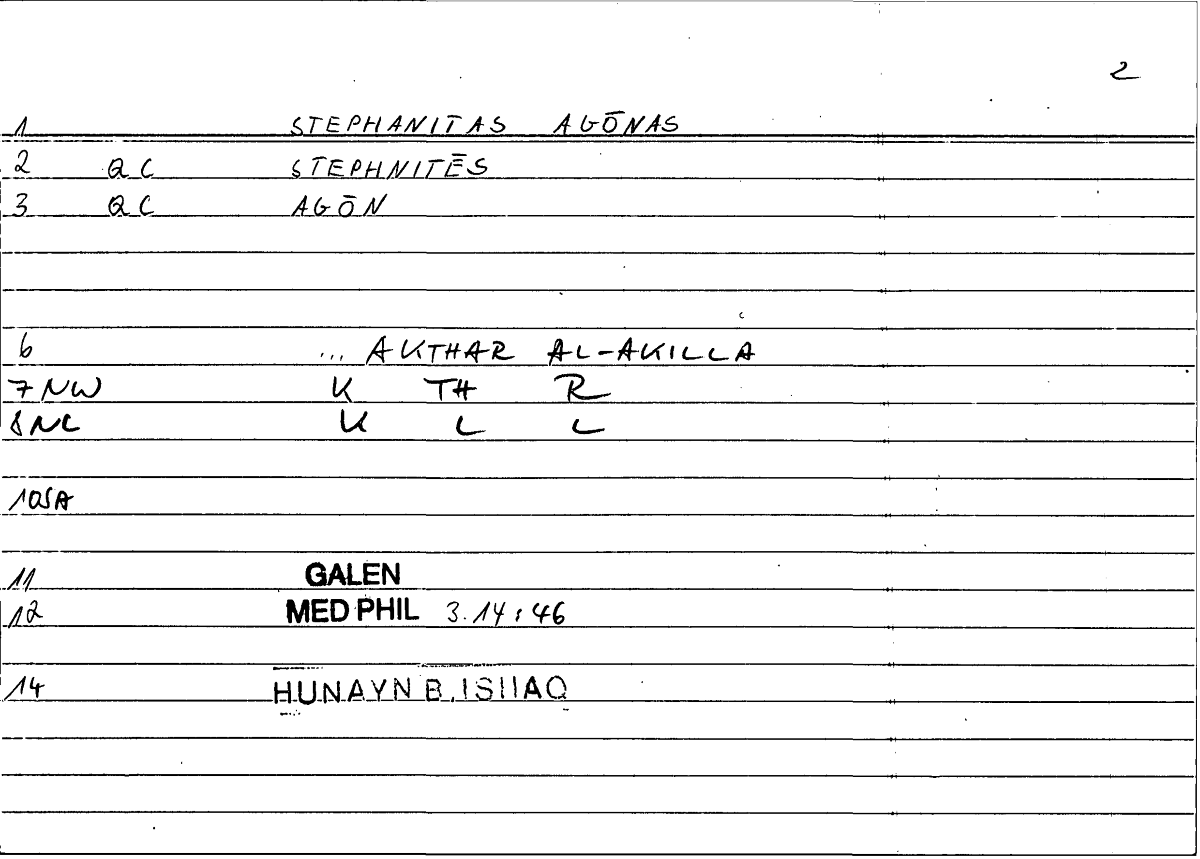 2
1 STEPHANITAS AGŌNAS
2 QC STEPHNITĒS
3 QC AGŌN
6 ... AKTHAR AL-AKILLA
7 NW K TH R
8 NC K L L
10SA
11 GALEN
12 MED PHIL 3.14:46
14 HUNAYN B. ISHAQ